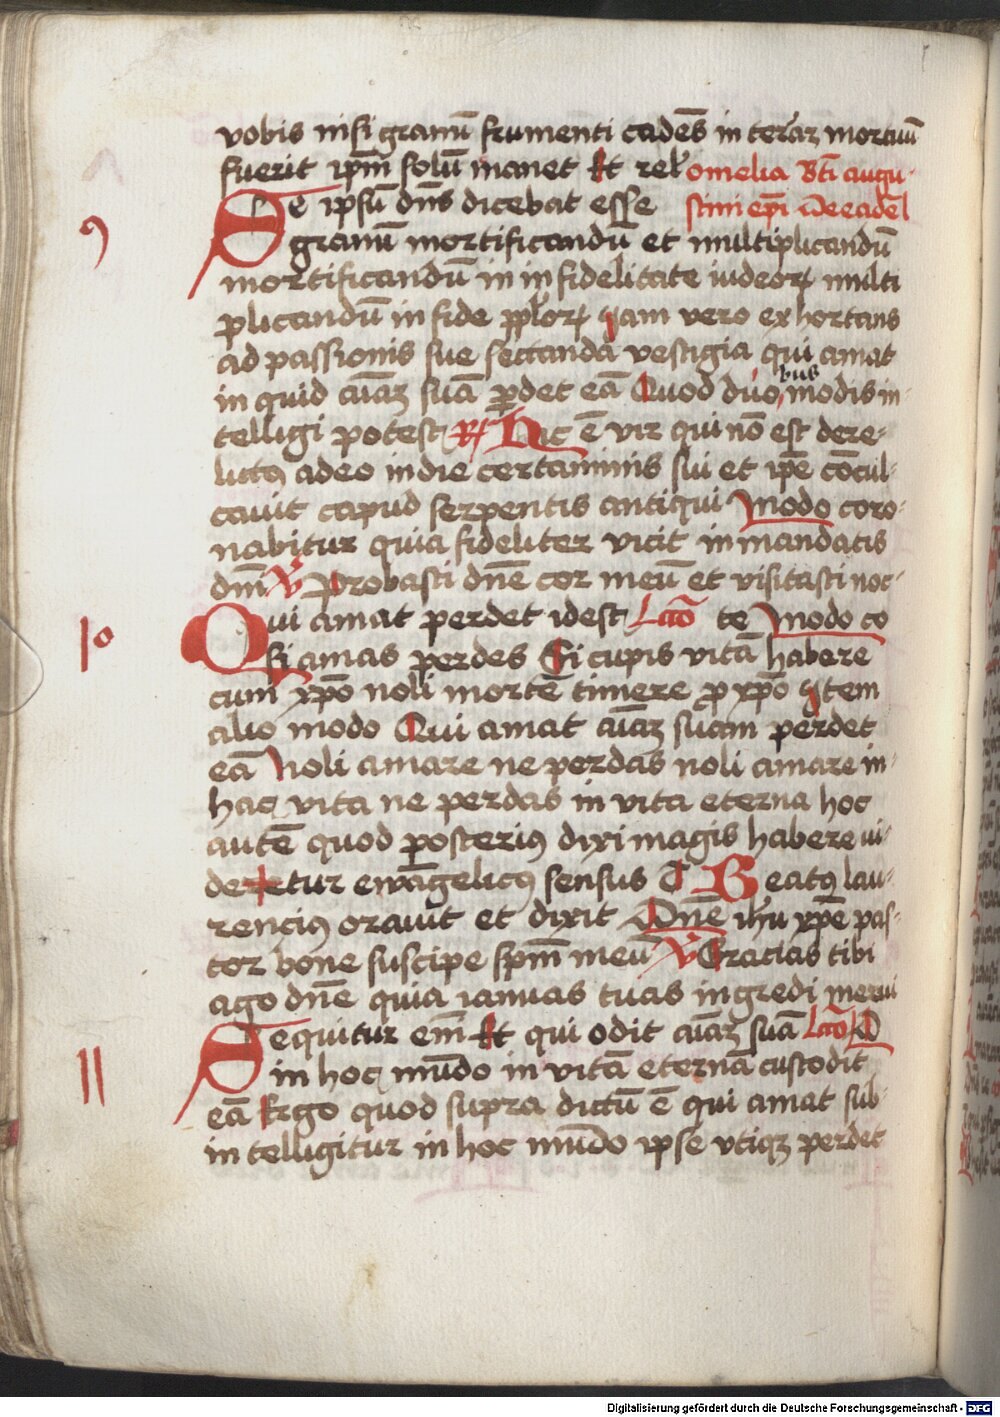 vobis nisi granū frumenti cadēs in terrā mortuū
fuerit ip̄m solū manet Et rel̄ omelia Bt̄i augu
Se ipsū dn̄s dicebat esse stini ep̄i de eadē
9 granū mortificandū et multiplicandū
mortificandū in infidelitate iudeoꝝ multi
plicandū in fide pp̄loꝝ Iam vero exhortans
ad passionis sue sectanda vestigia qui amat
in quid aīaꝫ suā ꝑdet eā Quod duobus modis in
telligi potest R Hic ē vir qui nō est dere
lictꝰ a deo in die certaminis sui et ip̄e cōcul
cauit capud serpentis antiqui Modo coro
nabitur quia fideliter vicit in mandatis
dn̄i V̄ Probasti dn̄e cor meū et visitasti noc
Qui amat perdet id est Lc̄io te Modo co
10 si amas perdes Si cupis vitā habere
cum xp̄o noli mortē timere ꝓ xp̄o Item
alio modo Qui amat aīaꝫ suam perdet
eā Noli amare ne perdas noli amare in
hac vita ne perdas in vita eterna hoc
autē quod posteriꝰ dixi magis habere vi
deretur ewāgelicꝰ sensus Beatꝰ lau
renciꝰ orauit et dixit Dn̄e ih̄u xp̄e pas
tor bone suscipe sp̄m meū V̄ Gracias tibi
ago dn̄e quia ianuas tuas ingredi merui
Sequitur em̄ Et qui odit aīaꝫ suā Lc̄io
11 in hoc mūdo in vitā eternā custodit
eā Ergo quod supra dictū ē qui amat sub
intelligitur in hoc mūdo ipse vtiqꝫ perdet
Digitalisierung gefördert durch die Deutsche Forschungsgemeinschaft - DFG